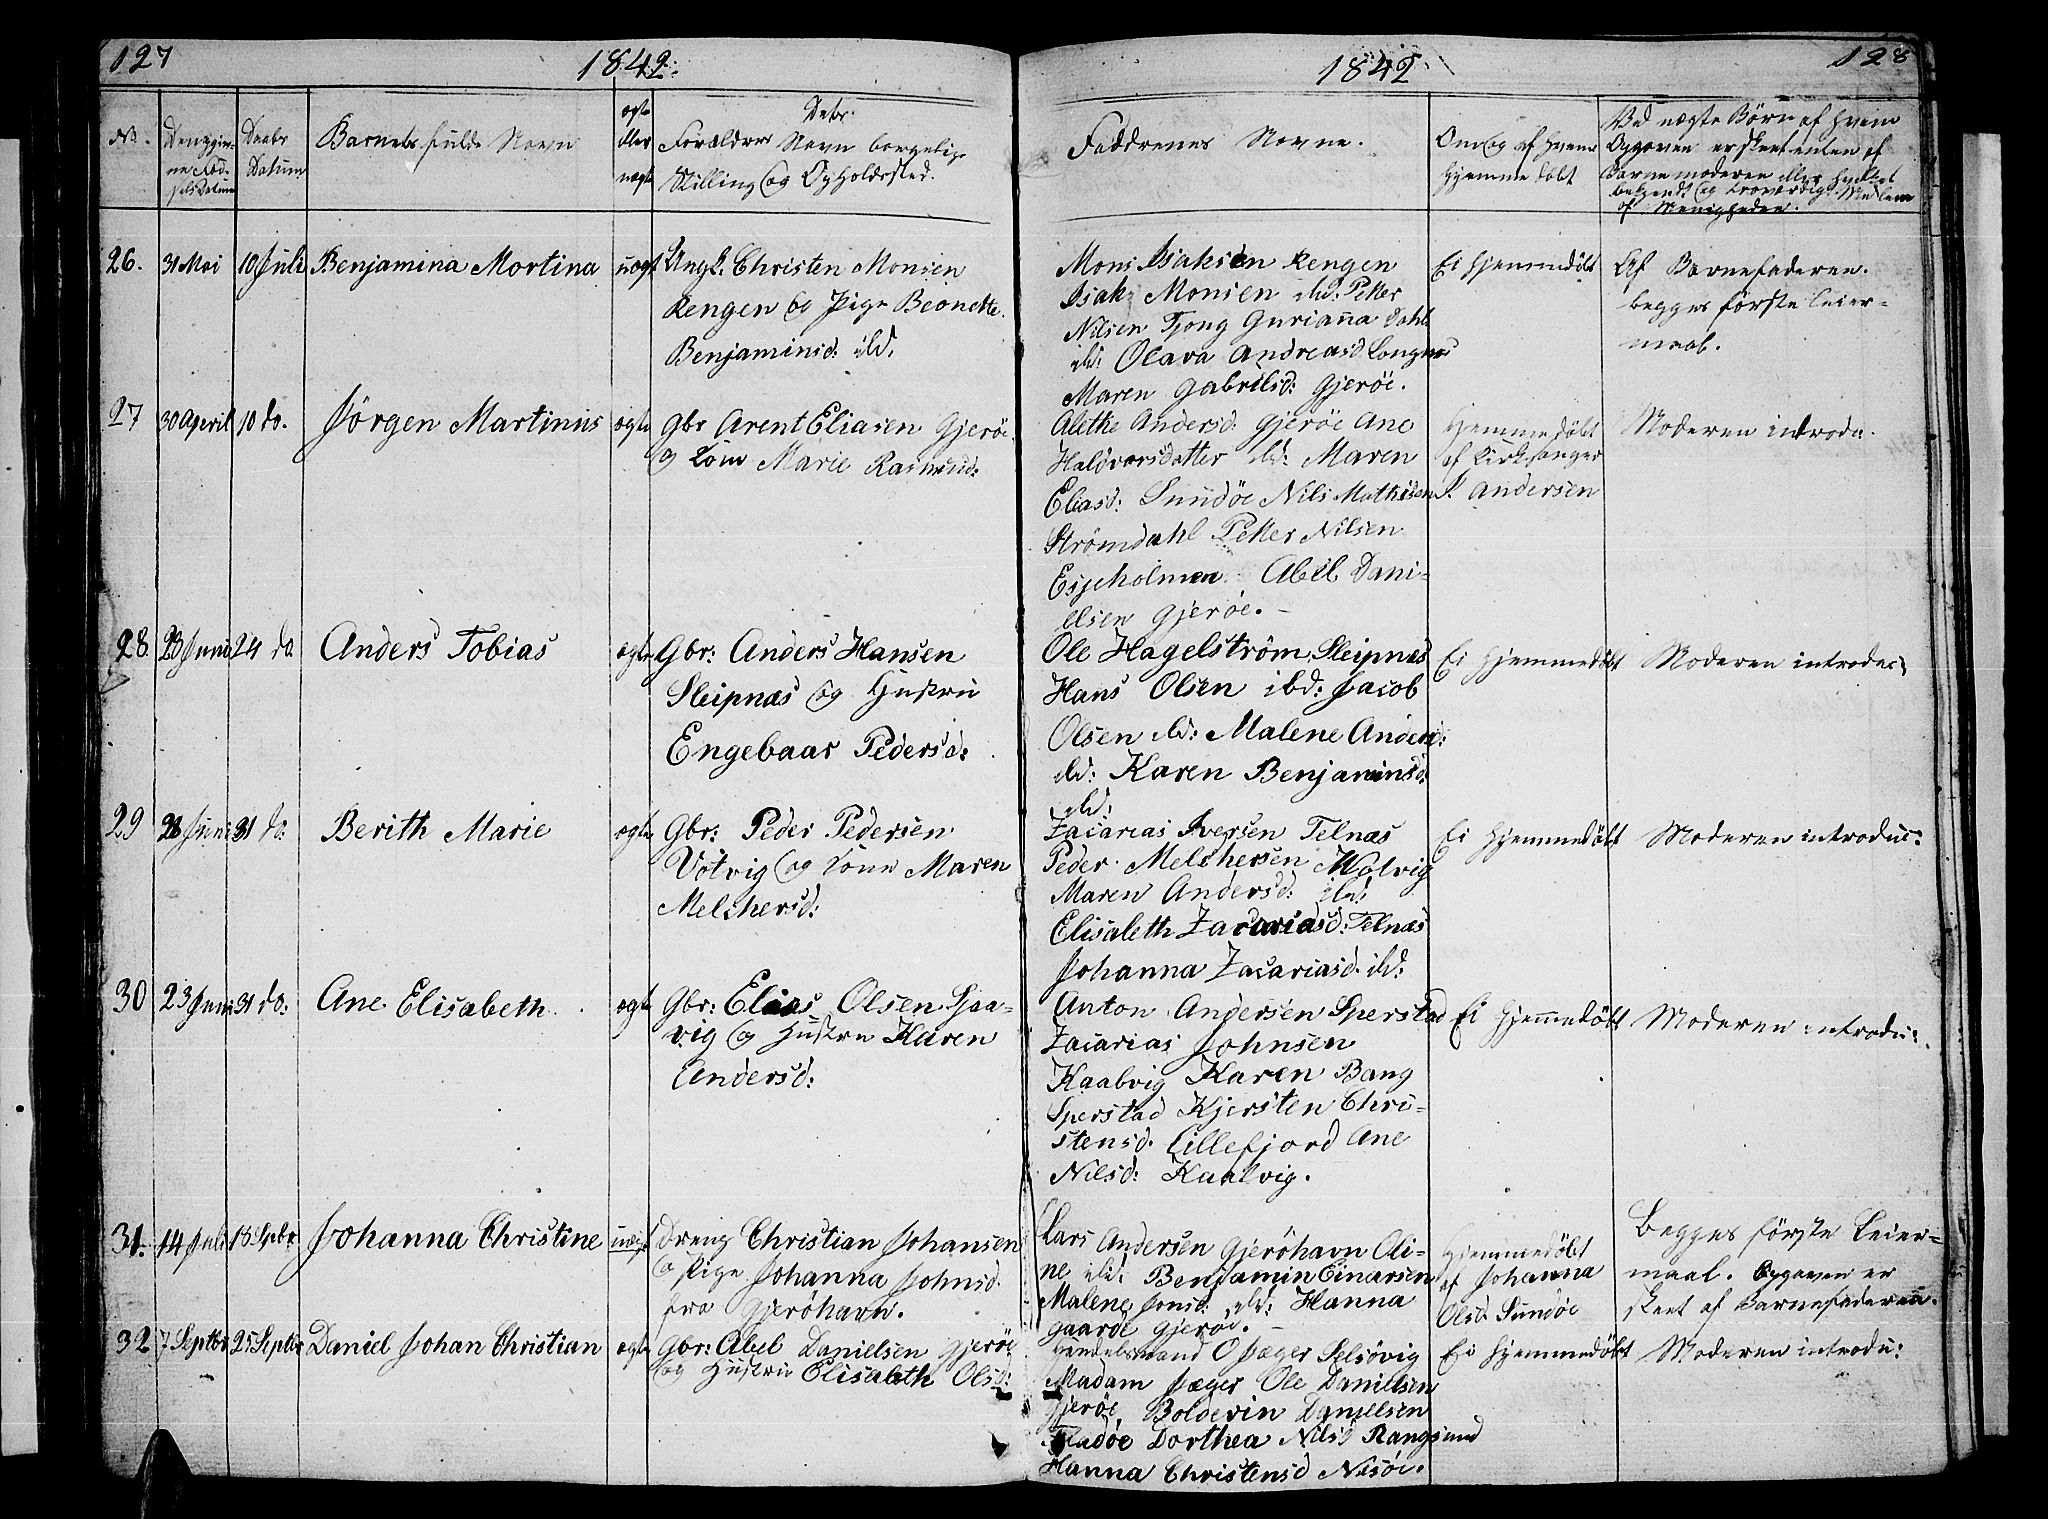 127
1842.
No.
Barnets fulde Navn
ægte
eller
uægte
Dets
Forældres Navn borgelige
Stilling og Opholdssted.
Daabs
Datum
26.
31 Mai
10 Juli
Benjamina Mortina
uægt
Ungk. Christen Monsen
Rengen og Pige Beonette
Benjaminsd: ibd.
27
30 April
10 do.
Jörgen Martinus
ægte
Gbr Arent Eliasen Gjeröe
og Kone Marie Rasmusd:
28.
23 Juni
24 do.
Anders Tobias
ægte
Gbr: Anders Hansen
Sleipnæs og Hustru
Engebaar Pedersd:
29
28 Juni
31 do:
Berith Marie
ægte
Gbr: Peder Pedersen
Votvig og Kone Maren
Melchersd:
30
23 Juni
31 do:
Ane Elisabeth
ægte
Gbr: Elias Olsen Sjaa-
vig og Hustru Karen
Andersd:
31.
14 Juli
18 Septbr
Johanna Christine
uægt
Dreng Christian Johansen
og Pige Johanna Johnsd.
fra Gjeröhavn.
32
7 Septbr
25 Septbr
Daniel Johan Christian
ægte
Gbr: Abel Danielsen Gjeröe
og Hustru Elisabeth Olsd:
1842
128
Faddrenes Navne.
Om og af hvem
hjemmedöbt
Ved uægte Börn af hvem
Opgaven er skeet enten af
Barnemoderen eller
af Menigheden.
Mons Isaksen Rengen
Isak Monsen ibd: Petter
Nilsen Tjong Gurianna Dahl
ibd: Olava Andreasd Longnæs
Maren Gabrilsd: Gjeröe.
Ei hjemmedöbt
Af Barnefaderen.
begges förste Leier-
maal.
Alethe Andersd. Gjeröe Ane
Haldvorsdatter ibd: Maren
Eliasd: Sundöe Nils Mathisen
Strömdahl Petter Nilsen
Espeholmen Abel Dani-
elsen Gjeröe. -
Hjemmedöbt
af Kirkesanger
Andersen
Moderen introdu.
Ole Hagelström Sleipnæs
Hans Olsen ibd: Jacob
Olsen ibd: Malene Andersd:
ibd: Karen Benjaminsd:
ibd:
Ei hjemmedöbt
Moderen introduc:
Zacarias Iversen Telnæs
Peder Melchersen Molvig
Maren Andersd: ibd:
Elisabeth Zacariasd: Telnæs
Johanna Zacariasd. ibd:
Ei hjemmedöbt
Moderen introduc:
Anton Andersen Sperstad
Zacarias Johnsen
Kaalvig Karen Bang
Sperstad Kjersten Chri-
stensd. Lillefjord Ane
Nilsd: Kaalvig.
Ei hjemmedöbt
Moderen introdu:
Lars Andersen Gjeröhavn Oli-
ne ibd. Benjamin Einarsen
Malene Jonsd: ibd: Hanna
Gaarde Gjeröe. -
Hjemmedöbt
af Johanna
Olsd. Sundöe
Begges förste Leier-
maal. Opgaven er
skeet af Barnefaderen.
Handelsmand O Jæger Selsövig
Madam Jæger Ole Danielsen
Gjeröe Boldevin Danielsen
Dorthea Nilsd Rangsund
Hanna Christensd Nesöe.
Ei hjemmedöbt
Moderen introdu: